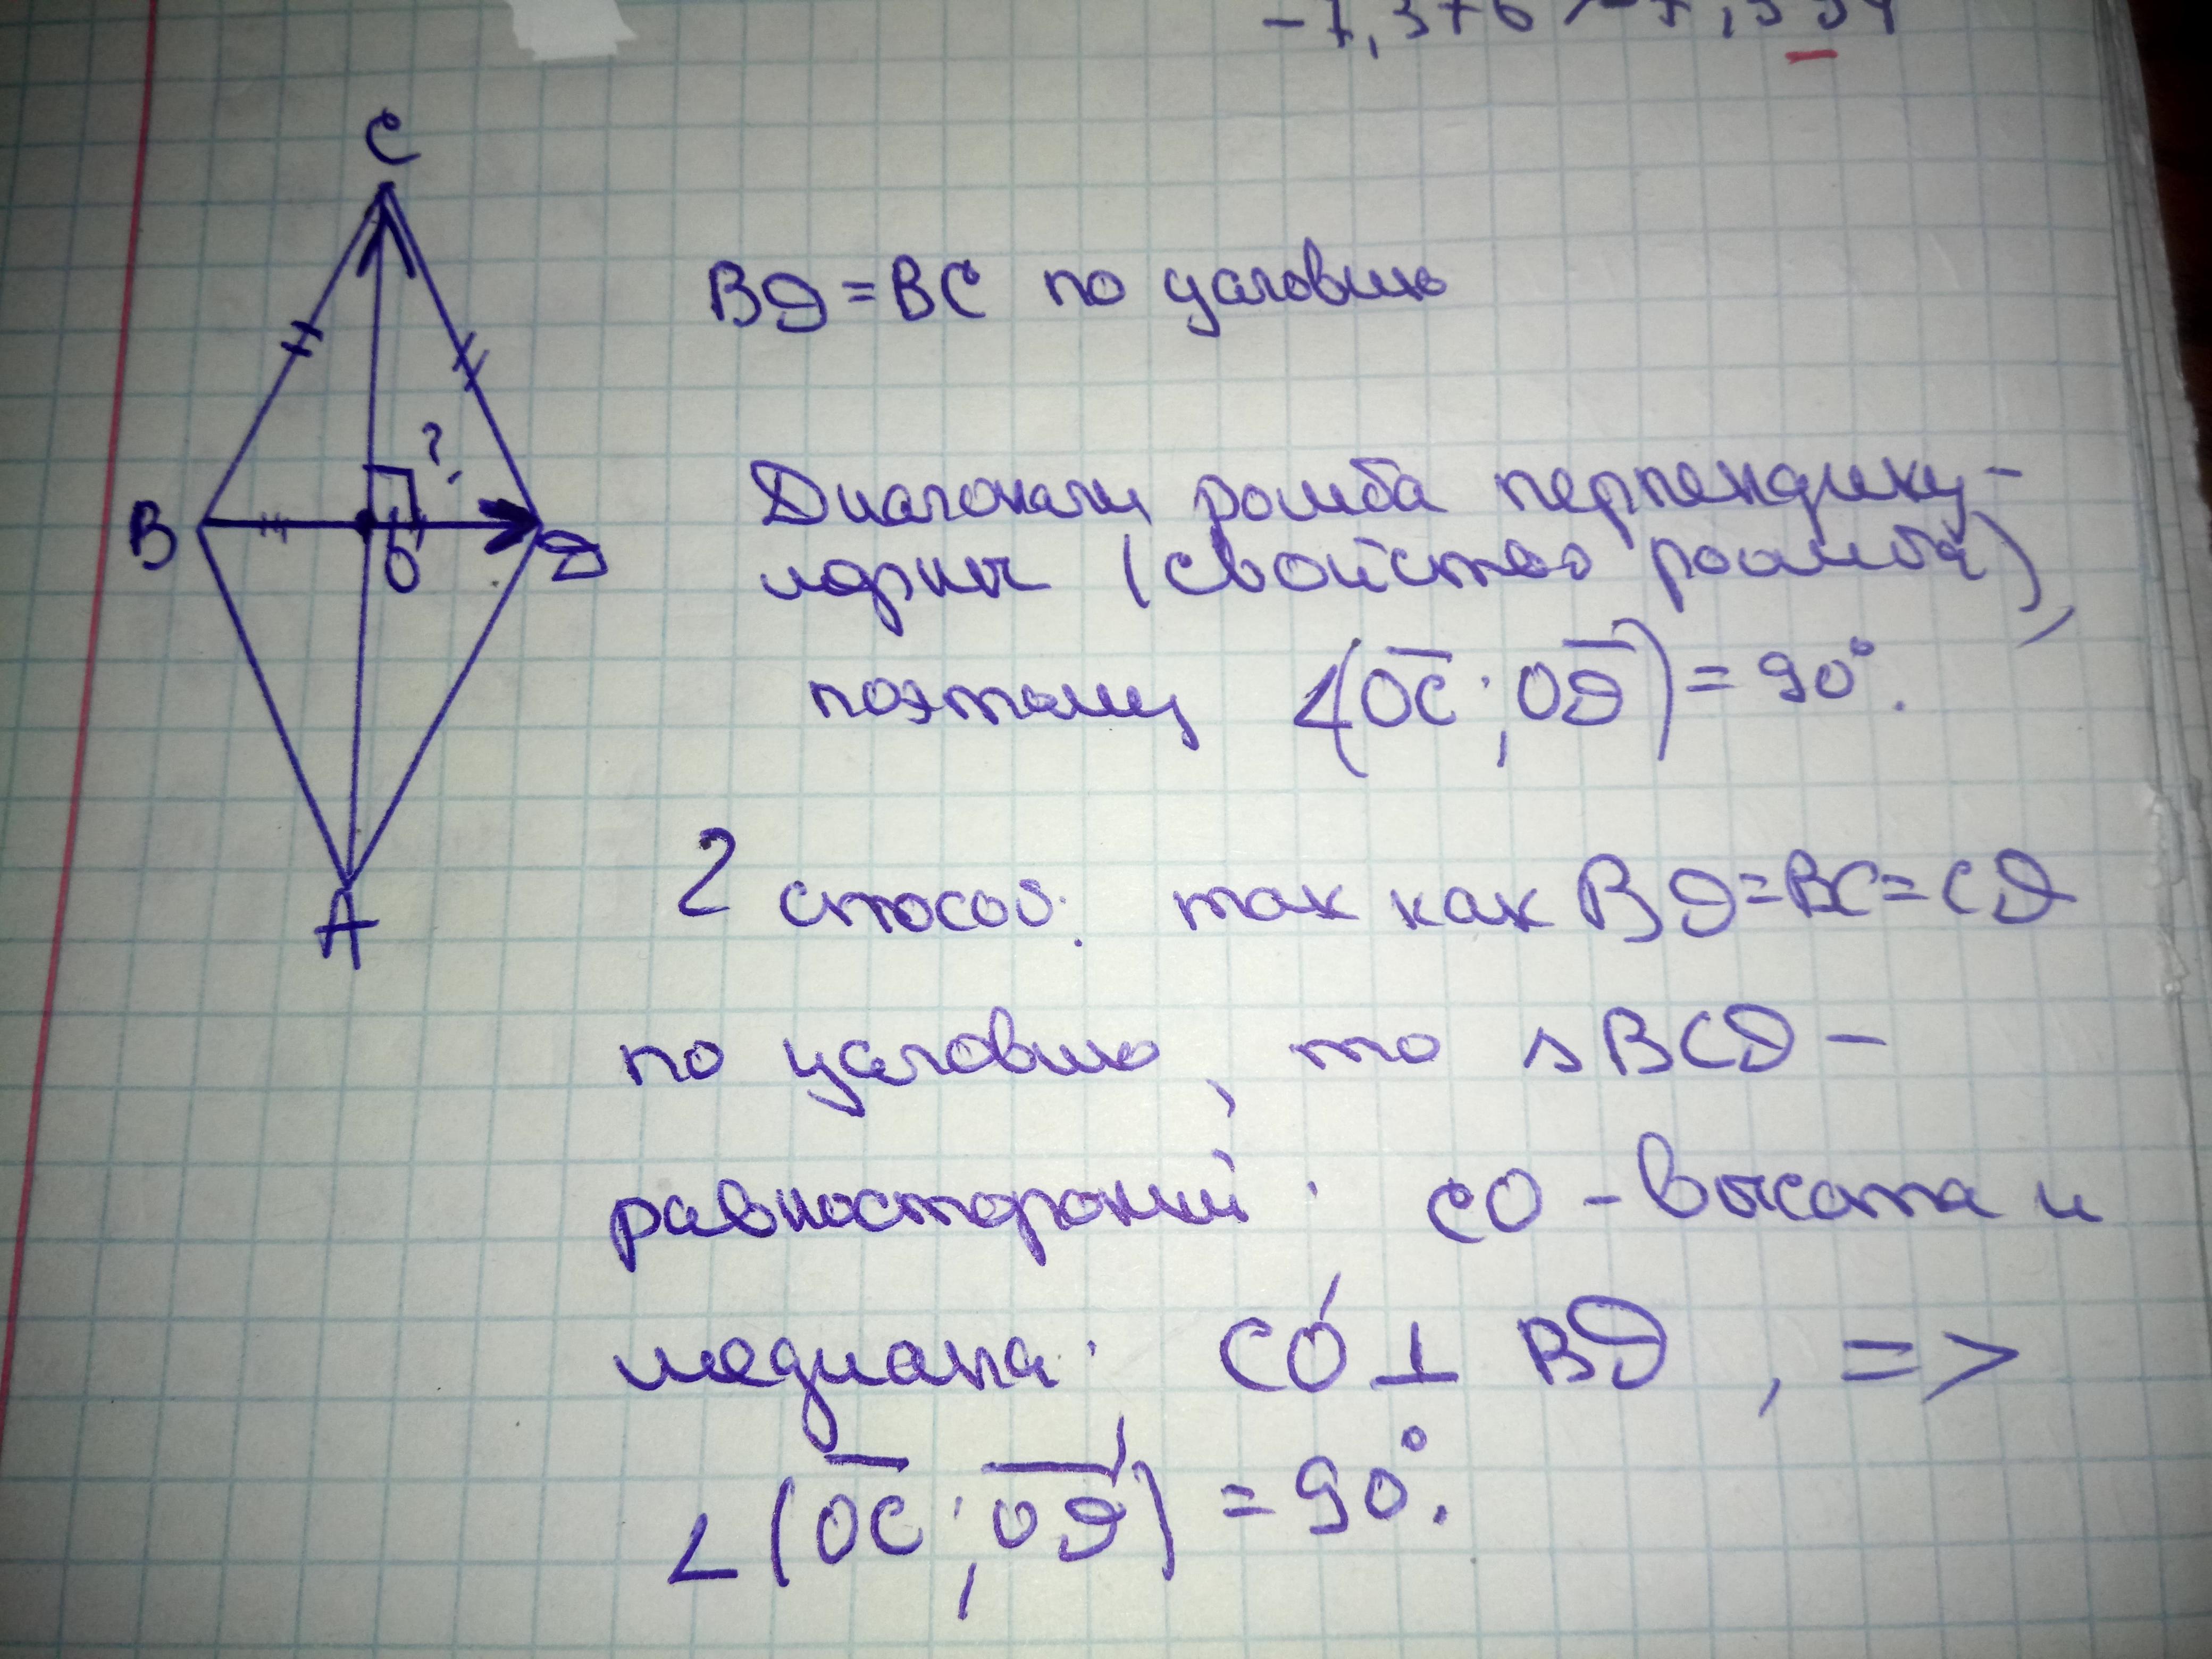 C
B
?
O
D
A
BD = BC по условию
Диагонали ромба перпендику-
лярны (свойство ромба),
поэтому ∠(OC̅; OD̅) = 90°.
2 способ: так как BD=BC=CD
по условию, то △BCD –
равносторонний. CO – высота и
медиана. CO ⊥ BD, =>
∠(OC̅; OD̅) = 90°.